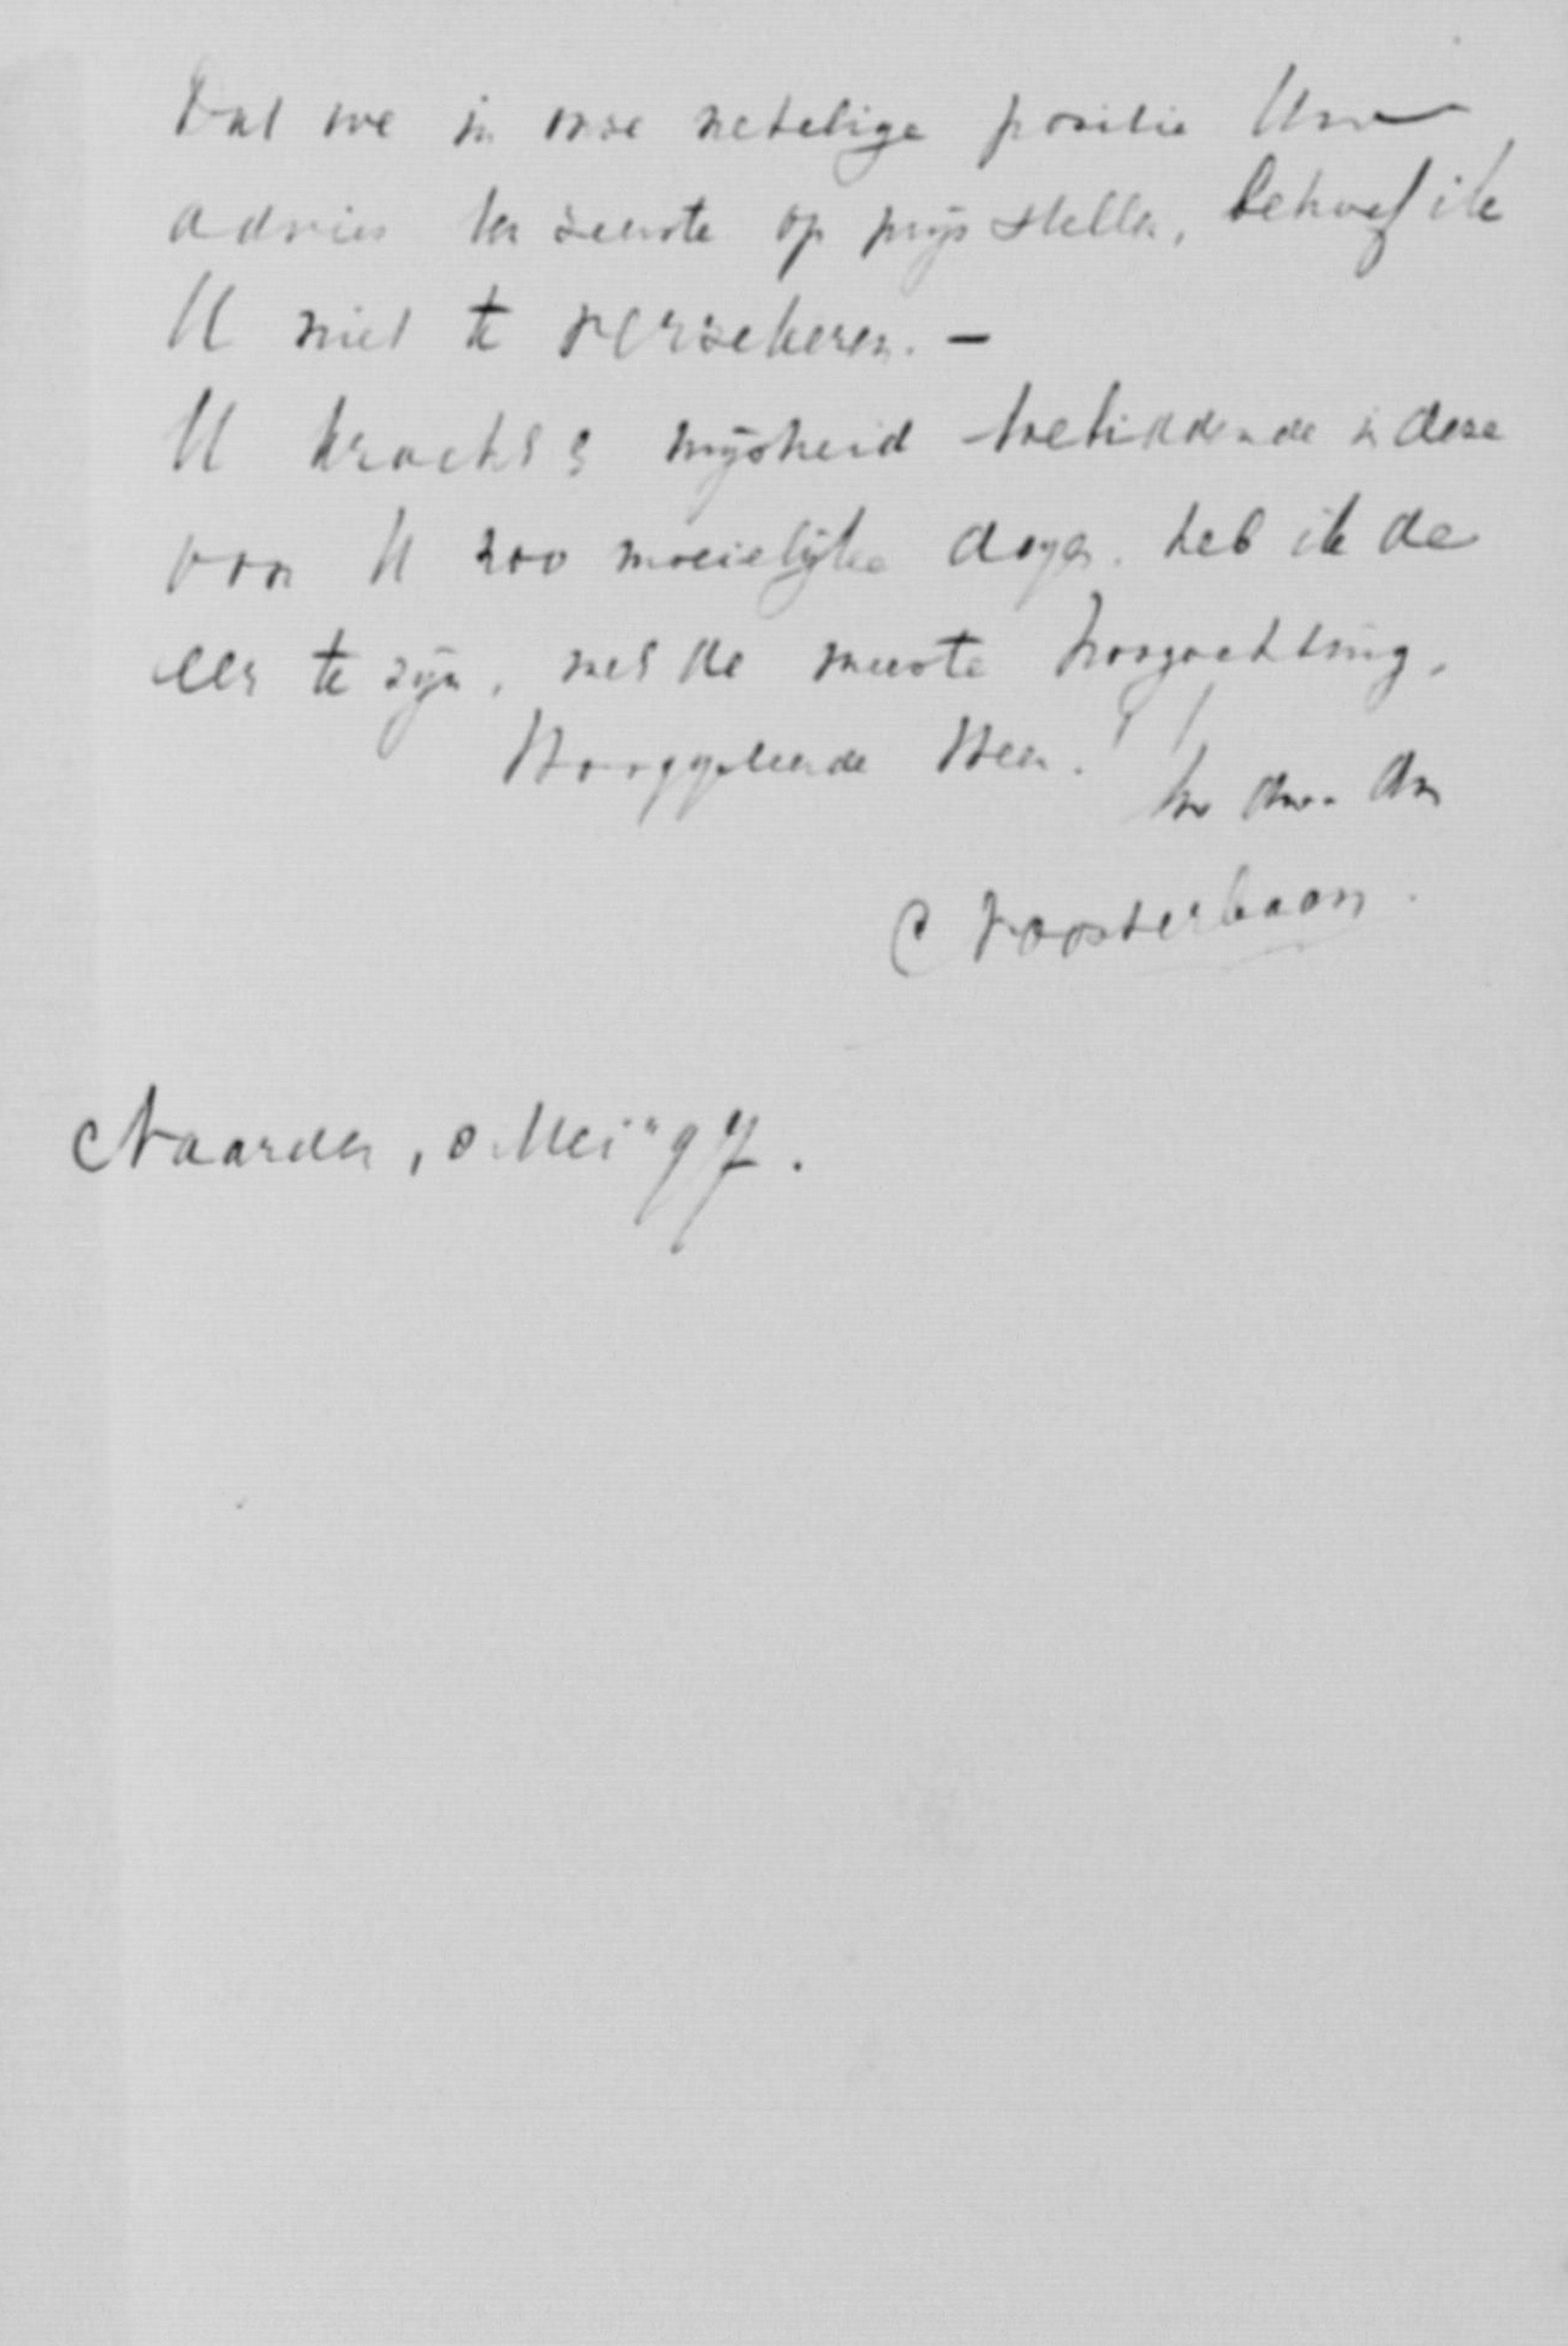 Dat we in onze netelige positie Uw
advies ten zeerste op prijs stellen, behoef ik
U niet te verzekeren. —
U kracht & wijsheid toebiddende in deze
voor U zoo moeielijke dagen. heb ik de
eer te zijn, met de meeste hoogachting,
Hooggeleerde Heer!
Uw dw. dn
C Voosterbaan.
Naarden, 8 Mei "97.